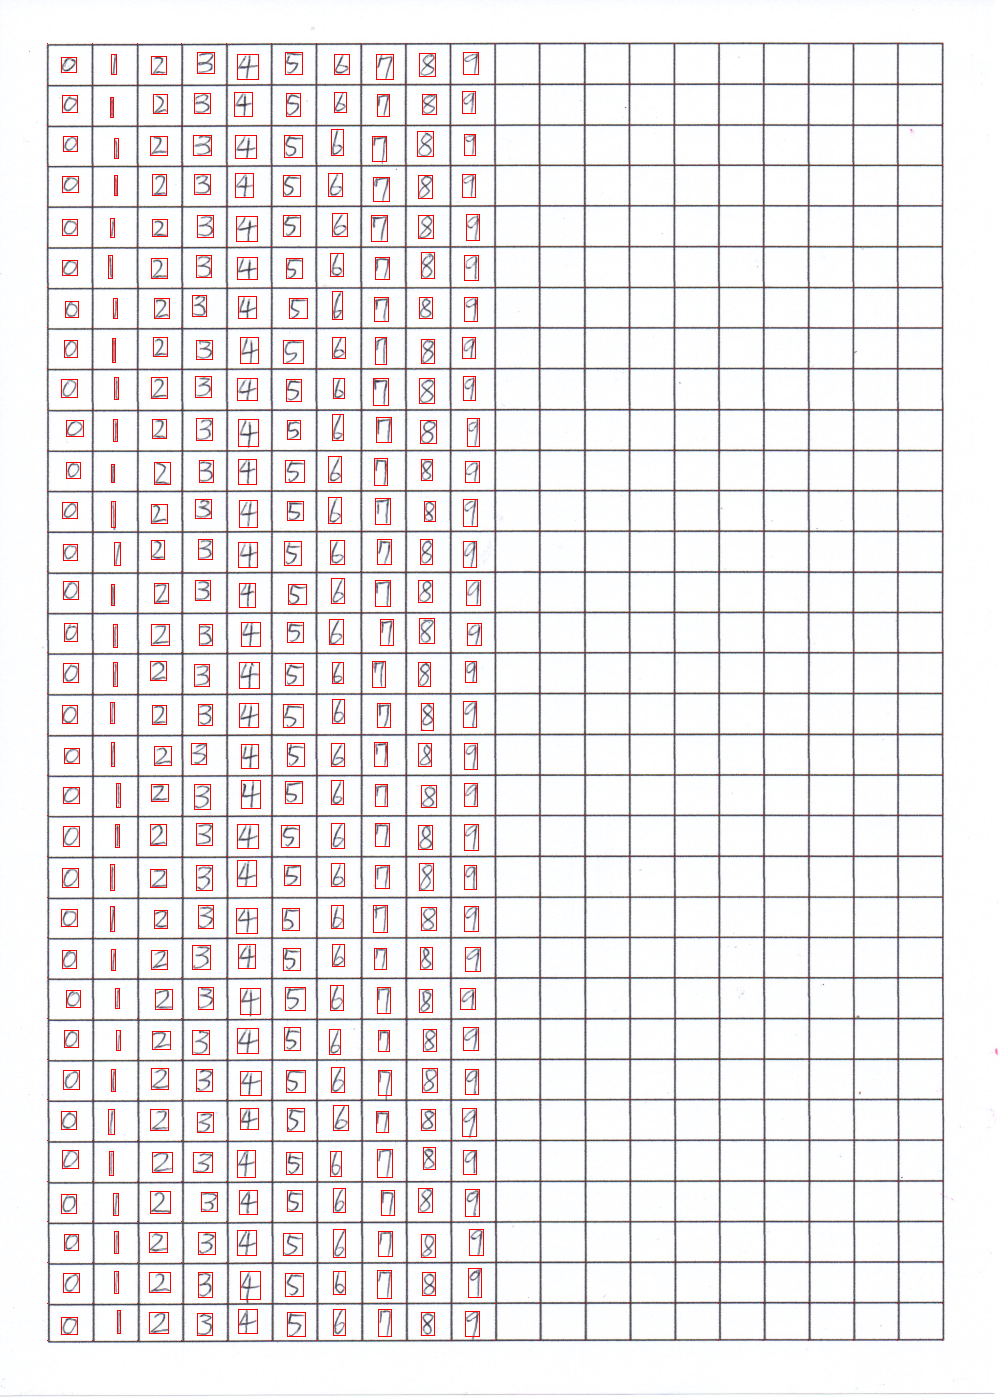 0 1 2 3 4 5 6 7 8 9
0 1 2 3 4 5 6 7 8 9
0 1 2 3 4 5 6 7 8 9
0 1 2 3 4 5 6 7 8 9
0 1 2 3 4 5 6 7 8 9
0 1 2 3 4 5 6 7 8 9
0 1 2 3 4 5 6 7 8 9
0 1 2 3 4 5 6 7 8 9
0 1 2 3 4 5 6 7 8 9
0 1 2 3 4 5 6 7 8 9
0 1 2 3 4 5 6 7 8 9
0 1 2 3 4 5 6 7 8 9
0 1 2 3 4 5 6 7 8 9
0 1 2 3 4 5 6 7 8 9
0 1 2 3 4 5 6 7 8 9
0 1 2 3 4 5 6 7 8 9
0 1 2 3 4 5 6 7 8 9
0 1 2 3 4 5 6 7 8 9
0 1 2 3 4 5 6 7 8 9
0 1 2 3 4 5 6 7 8 9
0 1 2 3 4 5 6 7 8 9
0 1 2 3 4 5 6 7 8 9
0 1 2 3 4 5 6 7 8 9
0 1 2 3 4 5 6 7 8 9
0 1 2 3 4 5 6 7 8 9
0 1 2 3 4 5 6 7 8 9
0 1 2 3 4 5 6 7 8 9
0 1 2 3 4 5 6 7 8 9
0 1 2 3 4 5 6 7 8 9
0 1 2 3 4 5 6 7 8 9
0 1 2 3 4 5 6 7 8 9
0 1 2 3 4 5 6 7 8 9